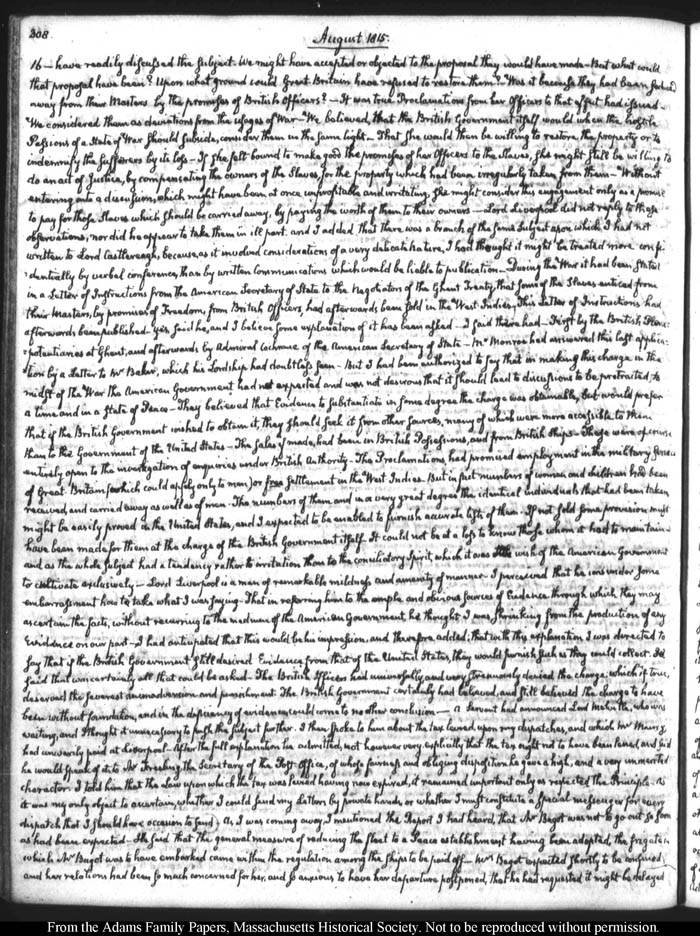 308.
August 1815.
16 — have readily discussed the subject. We might have accepted or objected to the proposal they would have made — But what could
that proposal have been? Upon what ground could Great Britain have refused to restore them? Was it because they had been
away from their Masters by the promises of British Officers? — It was true Proclamations from her Officers to that effect had issued —
We considered them as deviations from the usages of War — We believed, that the British Government itself would when the hostile
Passions of a State of War should subside, consider them in the same light — That she would then be willing to restore the property or to
indemnify the sufferers by its loss — If she felt bound to make good the promises of her Officers to the Slaves, she might still be willing to
do an act of Justice, by compensating the owners of the Slaves, for the property which had been irregularly taken from them — Without
entering into a discussion, which might have been at once unprofitable and irritating, she might consider this engagement only as a promise
to pay for those Slaves which should be carried away, by paying the worth of them to their owners — Lord Liverpool did not reply to these
observations, nor did he appear to take them in ill part, and I added that there was a branch of the same subject upon which I had not
written to Lord Castlereagh, because, as it involved considerations of a very delicate nature, I had thought it might be treated more confi-
dentially by verbal conference, than by written Communications which would be liable to publication — During the War it had been stated
in a Letter of Instructions from the American Secretary of State to the Negotiators of the Ghent Treaty, that some of the Slaves enticed from
their Masters, by promises of Freedom, from British Officers, had afterwards been sold in the West Indies. This Letter of Instructions had
afterwards been published — yes, said he, and I believe some explanation of it has been asked — I said there had — First by the British Pleni-
potentiaries at Ghent, and afterwards by Admiral Cochrane of the American Secretary of State — Mr Monroe had answered this last applica-
tion by a Letter to Mr Baker, which his Lordship had doubtless seen — But I had been authorized to say that in making this charge in the
midst of the War the American Government had not expected and was not desirous that it should lead to discussions to be protracted, to
a time and in a State of Peace — They believed that Evidence to substantiate in some degree the charge was obtainable, but would prefer
that if the British Government wished to obtain it, they should seek it from other sources, many of which were more accessible to them
than to the Government of the United States — The sales if made, had been in British Possessions, and from British Ships — These were of course
entirely open to the investigation of enquiries under British Authority. The Proclamations, had promised employment in the military service
of Great Britain (which could apply only to men) or free settlement in the West Indies. But in fact numbers of women and children had been
received, and carried away as well as of men — The numbers of them and in a very great degree the identical individuals that had been taken
might be easily proved in the United States, and I expected to be enabled to furnish accurate lists of them. If not sold some provision must
have been made for them at the charge of the British Government itself. It could not be at a loss to know those whom it had to maintain
and as the whole subject had a tendency rather to irritation than to the conciliatory Spirit, which it was the wish of the American Government
to cultivate exclusively — Lord Liverpool is a man of remarkable mildness and amenity of manner — I perceived that he was under some
embarrassment how to take what I was saying — That in referring him to the ample and obvious sources of Evidence through which they may
ascertain the facts, without recurring to the medium of the American Government, he thought I was shrinking from the production of any
Evidence on our part — I had anticipated that this would be his impression, and therefore added, that with this explanation I was directed to
say that if the British Government still desired Evidence from that of the United States, they would furnish such as they could collect. He
said that was certainly all that could be asked — The British Officers had universally, and very strenuously denied the charge, which if true,
deserved the severest animadversion and punishment. The British Government certainly had believed, and still believed the charge to have
been without foundation, and in the deficiency of evidence could come to no other conclusion — A Servant had announced Lord Melville, who was
waiting, and I thought it unnecessary to push the subject further. I then spoke to him about the tax levied upon my dispatches, and which Mr Maury
had unwarily paid at Liverpool — After the full explanation he admitted, not however very explicitly that the tax ought not to have been levied, and said
he would speak of it to Mr Freeling the Secretary of the Post-Office, of whose fairness and obliging disposition he gave a high, and a very unmerited
character. I told him that the Law upon which the tax was levied having now expired, it remained important only as respected the Principle. As
it was my only object to ascertain, whether I could send my Letters by private hands, or whether I must constitute a special messenger for every
dispatch that I should have occasion to send) — As I was coming away, I mentioned the Report I had heard, that Mr Bagot was not to go out so soon
as had been expected — He said that the general measure of reducing the fleet to a Peace establishment having been adopted, the frigate in
which Mr Bagot was to have embarked came within the regulation among the Ships to be paid off — Mrs Bagot expected shortly to be confined,
and her relations had been so much concerned for her, and so anxious to have her departure postponed, that he had requested it might be delayed
From the Adams Family Papers, Massachusetts Historical Society. Not to be reproduced without permission.